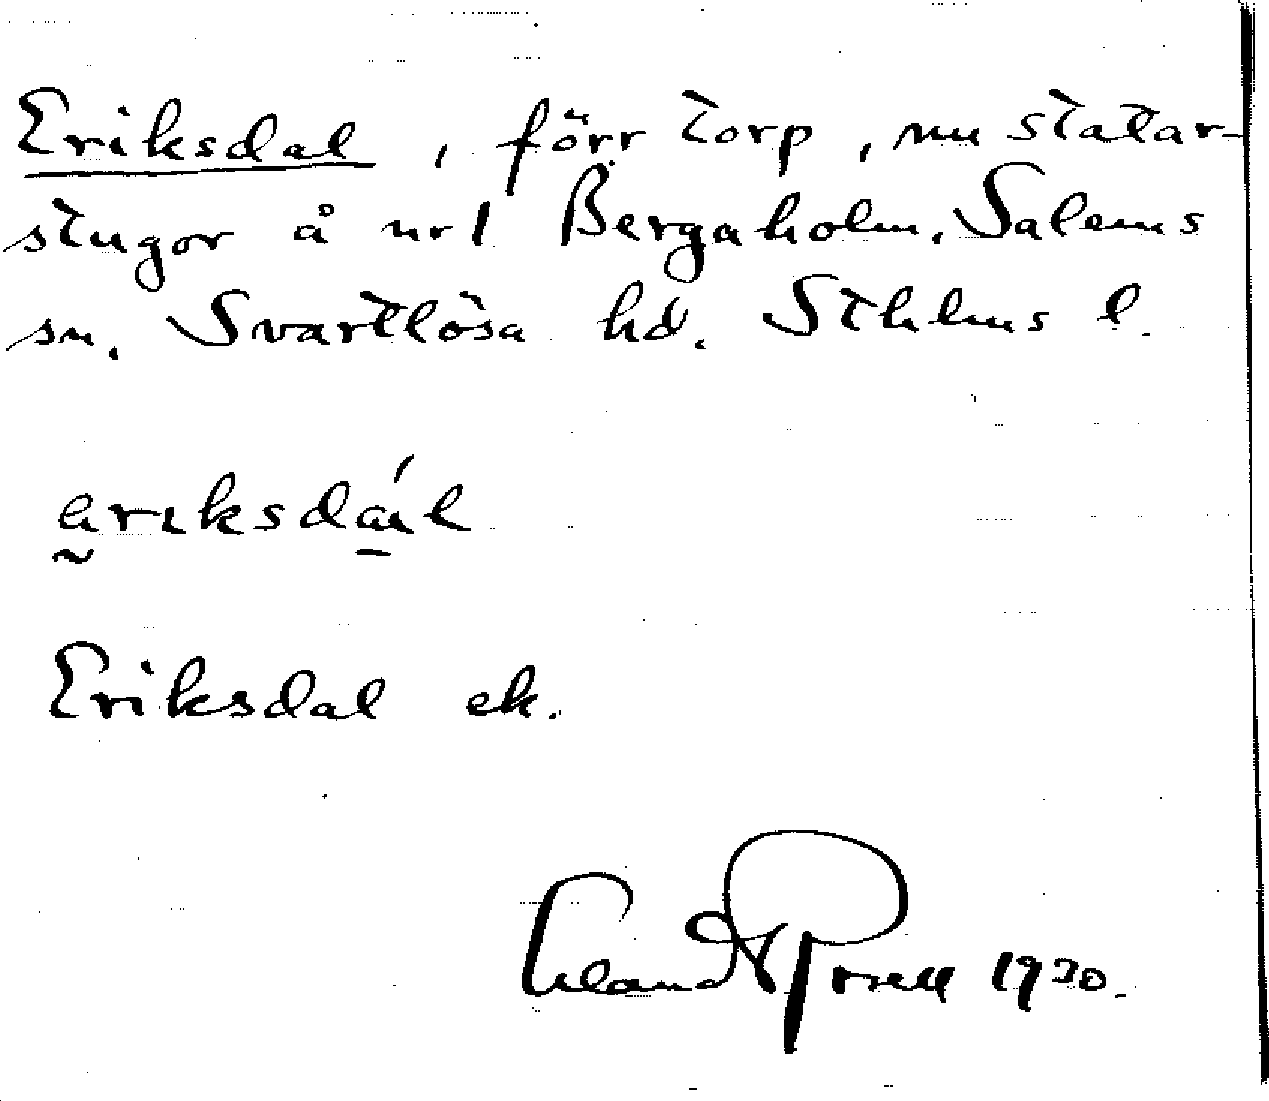 Eriksdal, förr torp, nu statar-
stugor å nr 1 Bergaholm, Salems
sn. Svartlösa hd. Sthlms l.
eriksdál
Eriksdal ek.
1930.